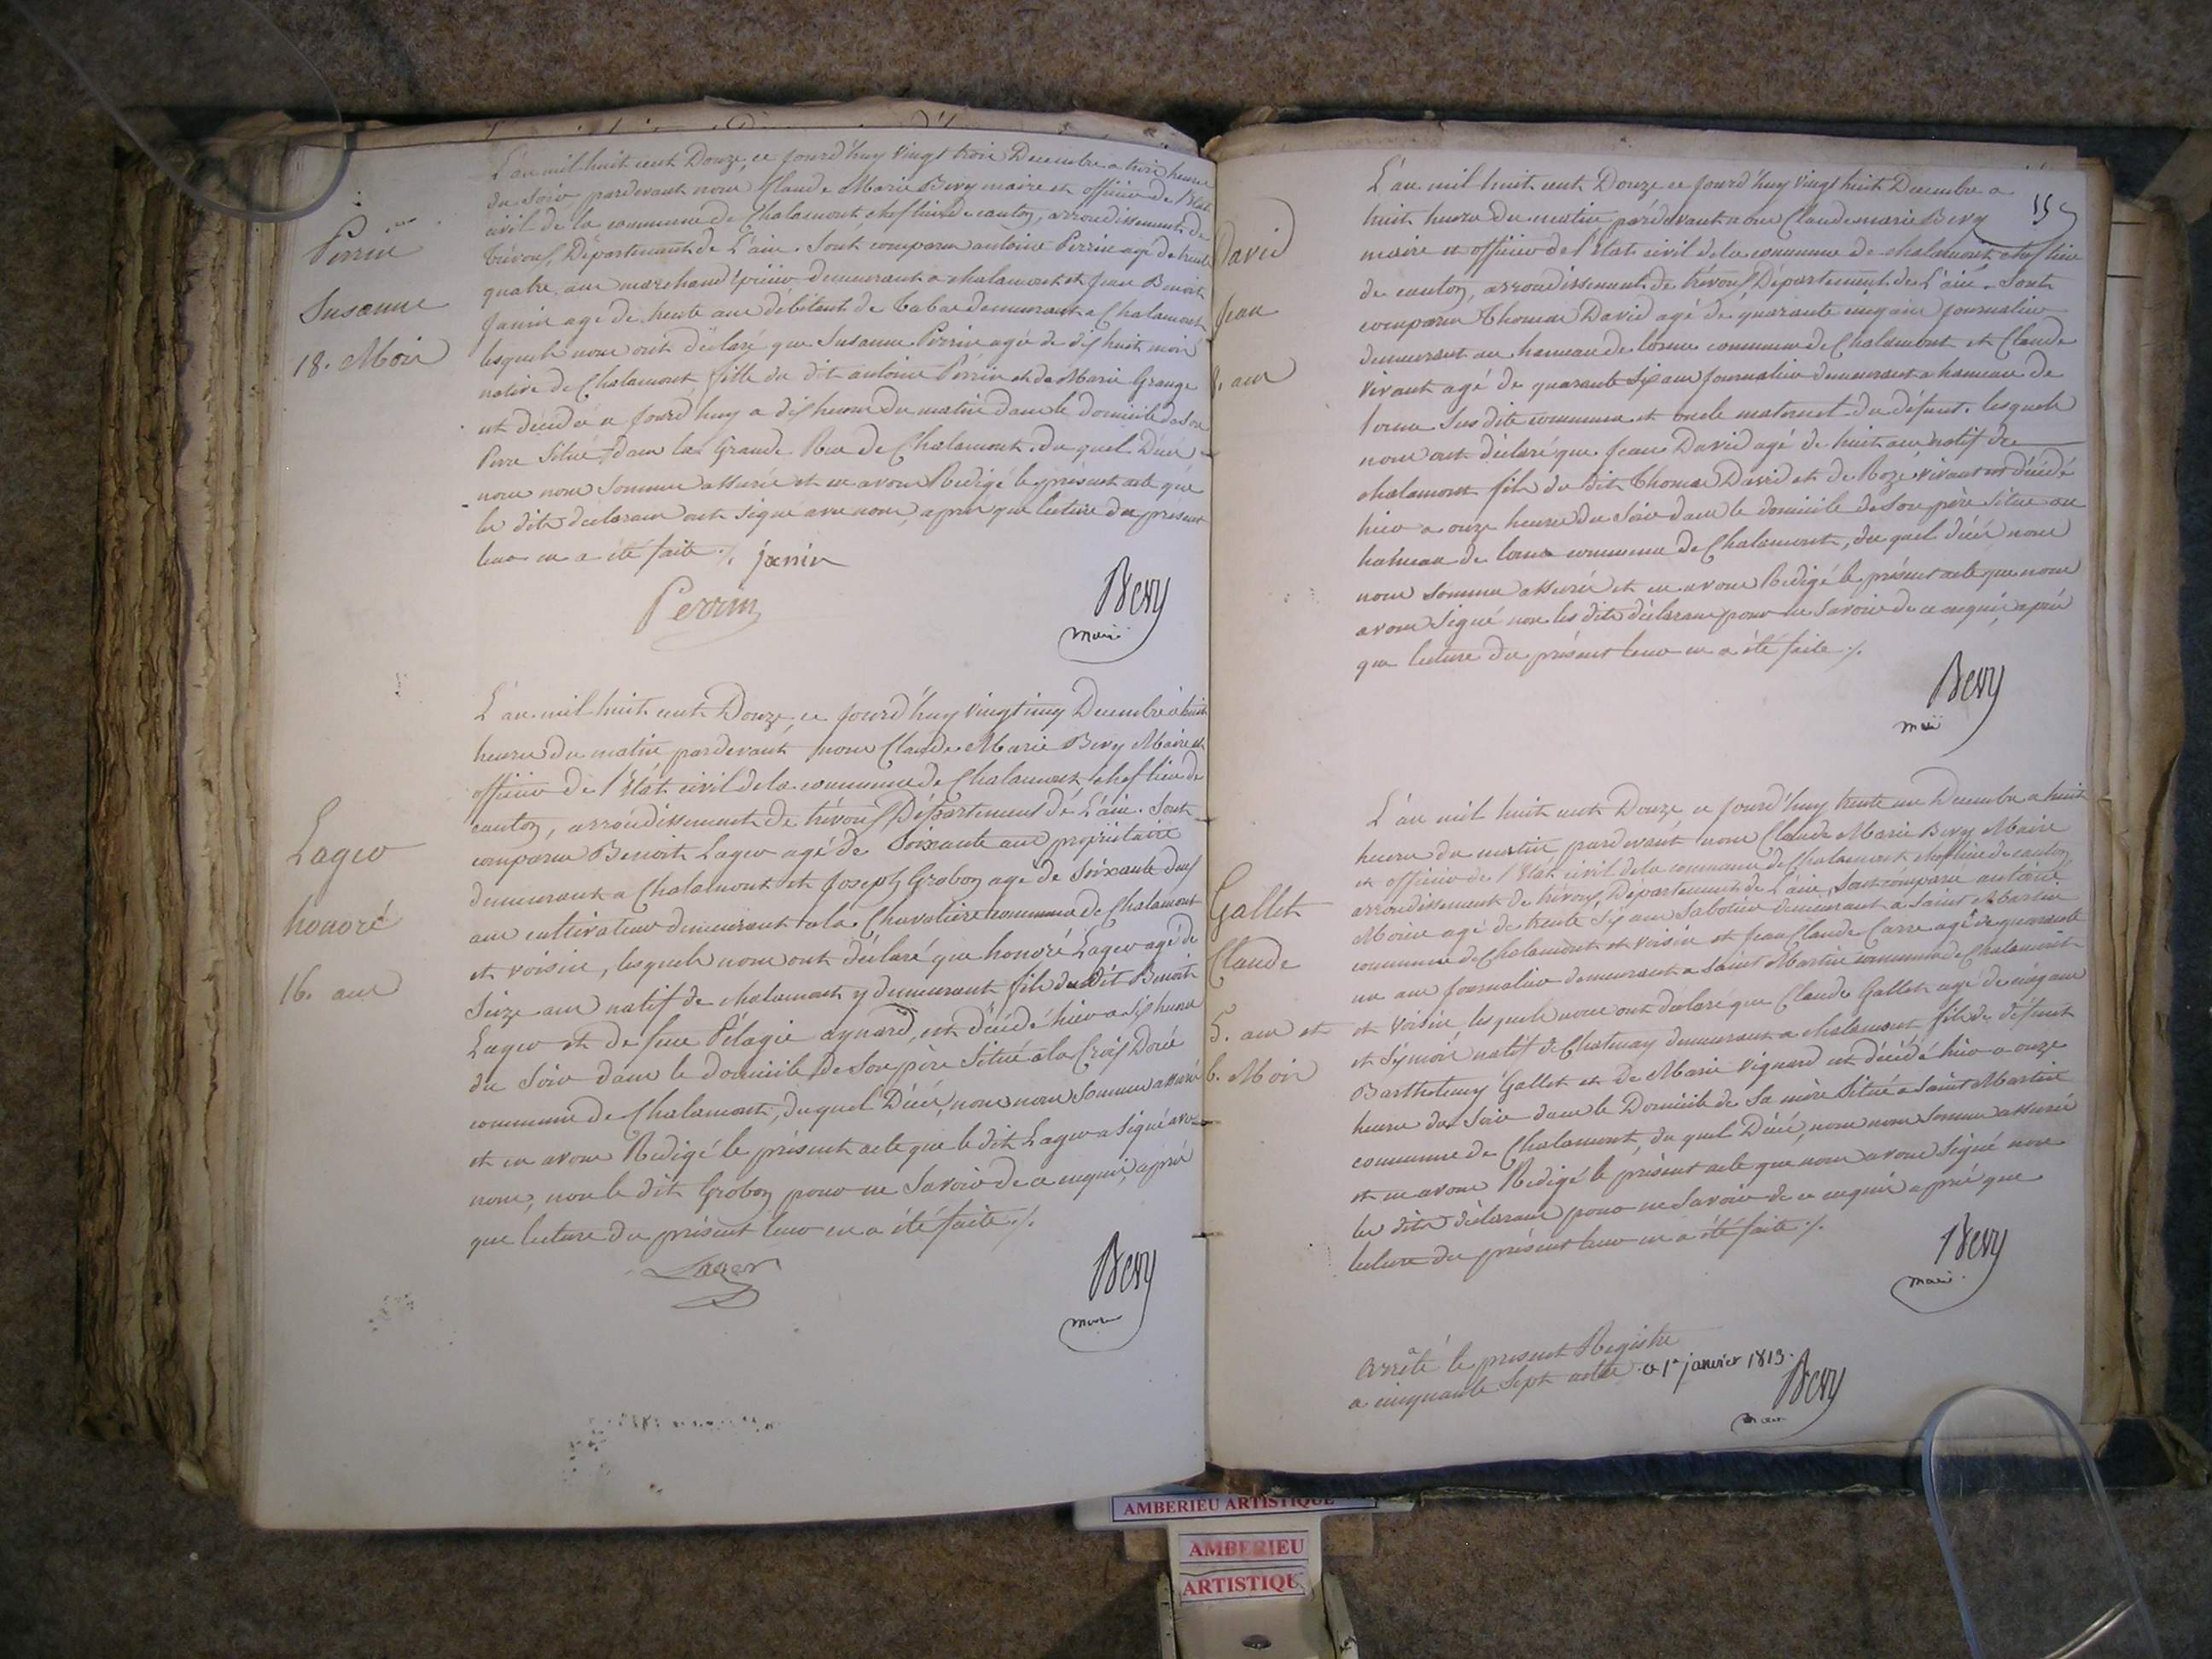 Perrin
Susanne
18. Mois
L'an mil huit cent Douze, ce jourd'huy vingt trois Decembre a trois heures
du Soir pardevant nous Claude Marie Bevy maire et officier de l'Etat
civil de la commune de Chalamont chef lieu de canton, arrondissement de
trévoux, Département de L'ain. Sont comparus antoine Perrin agé de trente
quatre ans marchand épicier demeurant a chalamont et jean Benoit
Janin agé de trente ans débitant de tabac demeurant a Chalamont
lesquels nous ont déclaré que Susanne Perrin agée de dix huit mois
native de Chalamont fille du dit antoine Perrin et de Marie Grange
est décédée ce jourd'huy a dix heures du matin dans le domicile de son
Pere Situé dans la Grande Rue de Chalamont. du quel Décès
nous nous sommes assurés et en avons Redigé le présent acte que
les dits déclarans ont signé avec nous, après que lecture du present
leur en a été faite ./. janin
Perrin
Bevy
maire
Lager
honoré
16. ans
L'an mil huit cent Douze, ce jourd'huy vingt cinq Decembre à huit
heures du matin pardevant nous Claude Marie Bevy Maire et
officier de l'Etat civil de la commune de Chalamont, chef lieu de
canton, arrondissement de trévoux Département de L'ain. Sont
comparus Benoit Lager agé de Soixante ans propriétaire
demeurant a Chalamont et Joseph Grobon agé de Soixante deux
ans cultivateur demeurant a la Chavatiere commune de Chalamont
et voisin, lesquels nous ont déclaré que honoré Lager agé de
Seize ans natif de chalamont y demeurant fils du dit Benoit
Lager et de feue Pélagie aynard, est décédé hier a dix heures
du Soir dans le domicile de Son père Situé a la Croix Dorée
commune de Chalamont, duquel Décès, nous nous Sommes assurés
et en avons Redigé le présent acte que le dit Lager a signé avec
nous, non le dit Grobon pour ne Savoir de ce enquis, après
que lecture du présent leur en a été faite ./.
Lager
Bevy
maire
155
David
Jean
8. ans
L'an mil huit cent Douze ce jourd'huy vingt huit Decembre a
huit heures du matin, pardevant nous Claude marie Bevy
maire et officier de l'Etat civil de la commune de chalamont chef lieu
de canton, arrondissement de trévoux Département de L'ain. Sont
comparus Thomas David agé de quarante cinq ans journalier
demeurant au hameau de commune de Chalamont et Claude
Vivant agé de quarante Six ans journalier demeurant a hameau de
Sus dite commune et oncle maternel du défunt. lesquels
nous ont déclaré que Jean David agé de huit ans natif de
chalamont fils du dit Thomas David et de Roze vivant est décédé
hier a onze heures du Soir dans le domicile de Son père Situé au
hameau de commune de Chalamont, du quel décès nous
nous sommes assurés et en avons Redigé le présent acte que nous
avons Signé non les dits déclarans pour ne Savoir de ce enquis, après
que lecture du présent leur en a été faite ./.
Bevy
maire
Gallet
Claude
5. ans et
6. Mois
L'an mil huit cent Douze, ce jourd'huy trente un Decembre a huit
heures du matin pardevant nous Claude Marie Bevy Maire
et officier de l'Etat civil de la commune de Chalamont chef lieu de canton,
arrondissement de trévoux, Département de L'ain, Sont comparus antoine
agé de trente Six ans Sabotier demeurant a Saint Martin
commune de Chalamont et voisin et Jean Claude Carre agé de quarante
un ans journalier demeurant a Saint Martin commune de Chalamont
et Voisin, lesquels nous ont declaré que Claude Gallet agé de cinq ans
et Six mois natif de Chatenay demeurant a chalamont fils de défunt
Barthelemy Gallet et De Marie Vignard est décédé hier a onze
heures du Soir dans le Domicile de Sa mère Situé a Saint Martin
commune de Chalamont, du quel Décès, nous nous Sommes assurés
et en avons Redigé le présent acte que nous avons Signé non
les dits déclarans pour ne Savoir de ce enquis après que
lecture du présent leur en a été faite ./.
Bevy
maire
Arrêté le present Registre
a cinquante Sept actes ce 1er janvier 1813.
Bevy
maire
AMBERIEU ARTISTIQUE
AMBERIEU
ARTISTIQUE